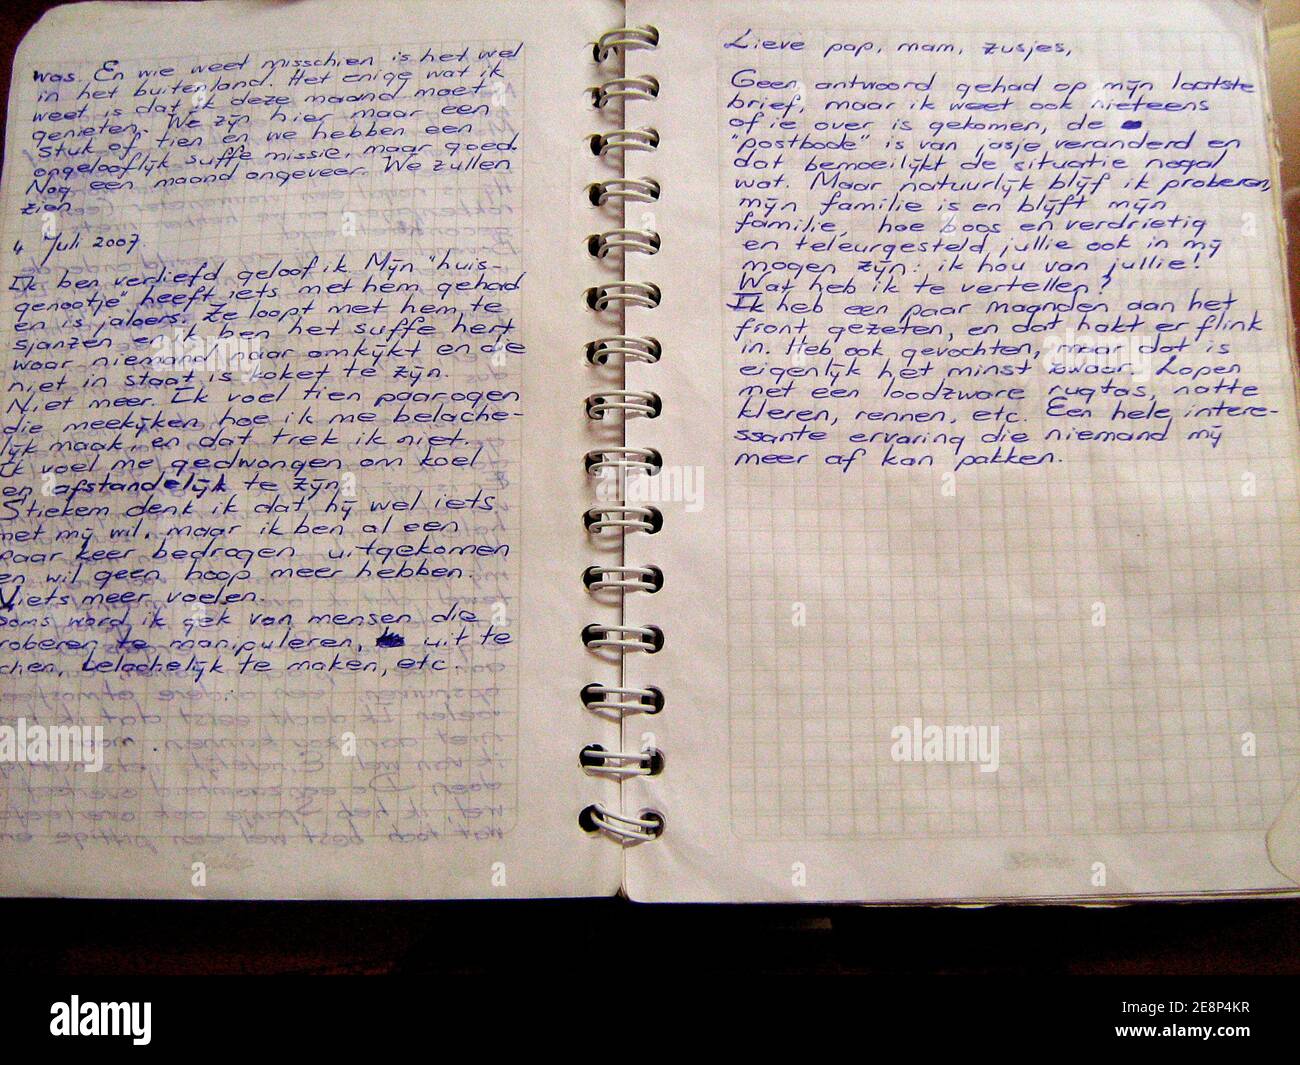 was. En wie weet misschien is het wel
in het buitenland. Het enige wat ik
weet is dat ik deze maand moet
genieten. We zijn hier maar een
stuk of tien en we hebben een
ongelooflijk suffe missie, maar goed.
Nog een maand ongeveer. We zullen
zien.
4 Juli 2007.
Ik ben verliefd geloof ik. Mijn "huis-
genootje" heeft iets met hem gehad
en is jaloers. Ze loopt met hem te
sjanzen en ik ben het suffe hert
waar niemand naar omkijkt en die
niet in staat is koket te zijn.
Niet meer. Ik voel tien paar ogen
die meekijken hoe ik me belache-
lijk maak, en dat trek ik niet.
Ik voel me gedwongen om koel
en afstandelijk te zijn.
Stiekem denk ik dat hij wel iets
met mij wil, maar ik ben al een
paar keer bedrogen uitgekomen
en wil geen hoop meer hebben.
Niets meer voelen.
Soms word ik gek van mensen die
roberen te manipuleren, uit te
chen, belachelijk te maken, etc.
Lieve pap, mam, zusjes,
Geen antwoord gehad op mijn laatste
brief, maar ik weet ook nieteens
of ie over is gekomen, de
"postbode" is van jasje veranderd en
dat bemoeilijkt de situatie nogal
wat. Maar natuurlijk blijf ik proberen,
mijn familie is en blijft mijn
familie, hoe boos en verdrietig
en teleurgesteld jullie ook in mij
mogen zijn: ik hou van jullie!
Wat heb ik te vertellen?
Ik heb een paar maanden aan het
front gezeten, en dat hakt er flink
in. Heb ook gevochten, maar dat is
eigenlijk het minst zwaar. Lopen
met een loodzware rugtas, natte
kleren, rennen, etc. Een hele intere-
ssante ervaring die niemand mij
meer af kan pakken.
alamy
Image ID: 2E8P4KR
www.alamy.com